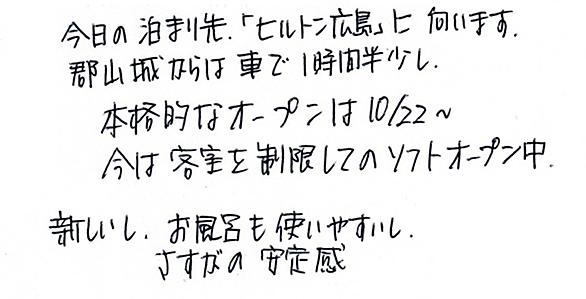 今日の泊まり先.「ヒルトン広島」に向います.
郡山城からは車で1時間半少し.
本格的なオープンは10/22～
今は客室を制限してのソフトオープン中.
新しいし.お風呂も使いやすいし.
さすがの安定感